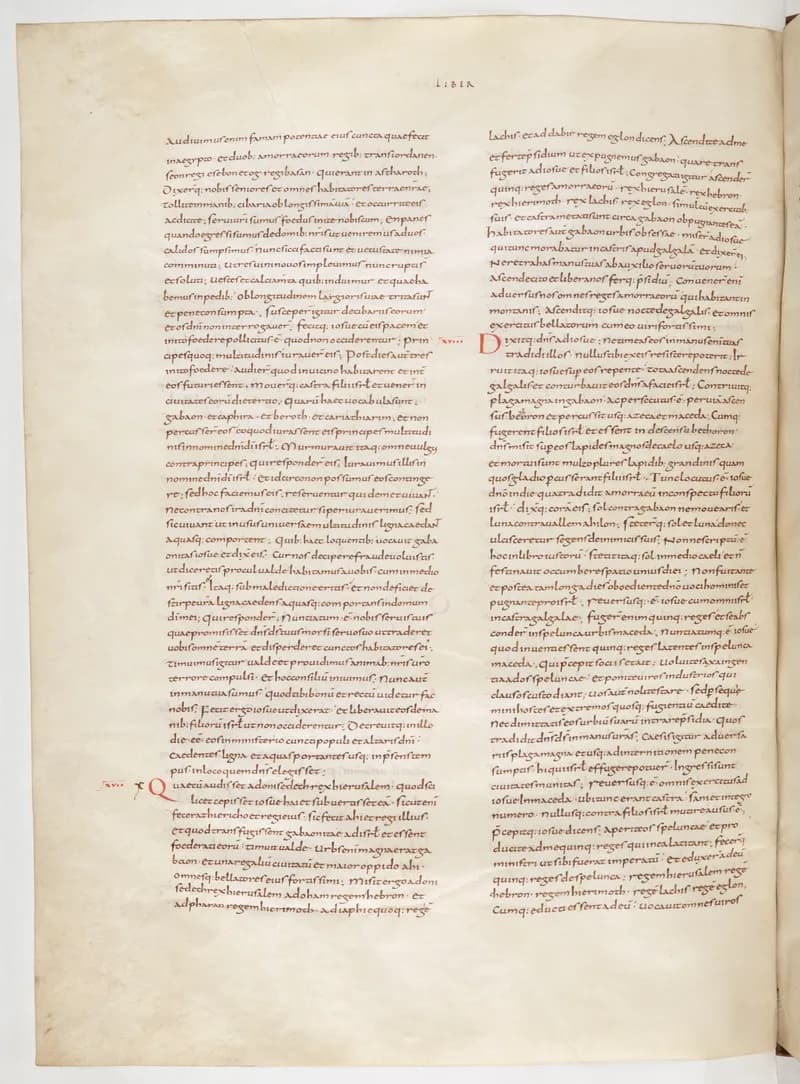 LIBER
Audiuimus enim famam potentiae eius cuncta quae fecit
in aegypto · et duob; amorraeorum regib; trans iordanen ·
seon regi esebon et og · regi basan · qui erant in astharoth;
Dixerq; nobis seniores et omnes habitatores terrae nrae;
tollite in manib; cibaria ob longissimā uiā · et occurrite eis
ac dicite; serui uri sumus foedus inite nobiscum; En panes
quando egressi sumus de domib; nris ut ueniremus ad uos
calidos sumpsimus · nunc sicci facti sunt et uetustate nimia
comminuti; utres uini nouos impleuimus nunc rupti s̄
et soluti; uestes et calciamta quib; induimur et quae ha
bemus in pedib; ob longitudinem largioris uiae trita sunt
et pene consumpta; susceper igitur de cibariis eorum
et os dnī non interrogauer; fecitq; iosue cū eis pacem et
inito foedere pollicitus ē · quod non occiderentur; prin
cipes quoq; multitudinis iurauer eis; Post dies aū tres
initi foederis · audier quod in uicino habitarent et int̄
eos futuri essent; mouerq; castra filii isrł et uener in
ciuitates eorū die tertio; Quarū haec uocabula sunt;
gabaon · et caphira · et beroth · et cariathiarim; et non
percusser eos eo quod iurassent eis principes multitudi
nis in nomine dnī di isrł; Murmurauit itaq; omne uulgꝰ
contra principes; qui responder eis; Iurauimus illis in
nomine dnī di isrł · et idcirco non possumus eos continge
re; sed hoc faciemus eis; reseruentur quidem ut uiuant
ne contra nos ira dnī concitetur si peierauerimus; sed
sic uiuant ut in usus uniuersae multitudinis ligna caedant
aquasq; comportent; Quib; haec loquentib; uocauit gaba
onitas iosue et dixit eis; Cur nos decipere fraude uoluistis
ut diceretis procul ualde habitamus a uobis · cum in medio
nri sitis? Itaq; sub maledictione eritis · et non deficiet de
stirpe urā ligna caedens aquasq; comportans in domum
di mei; qui responder; Nuntiatum ē nobis seruis tuis
quae promisisset dns ds tuus mosi seruo suo ut traderet
uobis omnē terrā · et disperderet cunctos habitatores ei;
timuimus igitur ualde et prouidimus animab; nris uro
terrore compulsi · et hoc consiliū iniuimus; Nunc aū
in manu tua sumus · quod tibi bonū et rectū uidetur fac
nobis; Fecit ergo iosue ut dixerat · et liberauit eos de ma
nib; filiorū isrł ut non occiderentur; Decreuitq; in illo
die eē eos in ministerio cuncti populi et altaris dnī ·
Caedentes ligna et aquas portantes usq; in psens tem
pus in loco quem dns elegisset;
·xvii· Quae cū audisset adonisedech rex hierusalem · quod sci
licet cepisset iosue hai et subuertisset eā · sicut eni
fecerat hiericho et regi eius; sic fecit ahi et regi illius ·
et quod transfugissent gabaonitae ad isrł et essent
foederati eorū · timuit ualde · Urbs eni magna erat ga
baon · et una regaliū ciuitatū et maior oppido ahi ·
omnesq; bellatores eius fortissimi; Misit ergo adoni
sedech rex hierusalem ad oham regem hebron · et
ad pharan regem hierimoth · ad iaphie quoq; regē
lachis · et ad dabir regem eglon dicens; Ascendite ad me
et ferte psidium ut expugnemus gabaon · quare trans
fugerit ad iosue et filios isrł; Congregati igitur ascender
quinq; reges amorraeorū · rex hierusalē · rex hebron ·
rex hierimoth · rex lachis · rex eglon · simul cū exercitib;
suis · et castrametati sunt circa gabaon obpugnantes eā ·
habitatores aūt gabaon urbis obsessae · miser ad iosue
qui tunc morabatur in castris apud galgalā · et dixer ei;
Ne retrahas manus tuas ab auxilio seruorū tuorum ·
Ascende cito et libera nos ferq; psidiū; Conuener eni
aduersū nos omnes reges amorraeorū qui habitant in
montanis; Ascenditq; iosue · de galgalis · et omnis
exercitus bellatorum cum eo uiri fortissimi;
·xviii· Dixitq; dns ad iosue; Ne timeas eos in manus eni tuas
tradidi illos · nullus tibi ex eis resistere poterit; Ir
ruit itaq; iosue sup eos repente · tota ascendens nocte de
galgalis et conturbauit eos dns a facie isrł; Contriuitq;
plaga magna in gabaon · ac persecutus ē · per uiā ascen
sus bethoron et percussit usq; azeca et maceda; Cumq;
fugerent filios isrł · et essent in descensu bethoron ·
dns misit sup eos lapides magnos de caelo usq; azeca ·
et mortui sunt multo plures lapidib; grandinis quam
quos gladio percusserant filii isrł · Tunc locutus ē · iosue
dnō in die qua tradidit amorraeū in conspectu filiorū
isrł · dixitq; corā eis; sol contra gabaon ne mouearis et
luna contra uallem ahilon; steterq; sol et luna donec
ulcisceretur se gens de inimicis suis; Nonne scriptū ē
hoc in libro iustorū · stetit itaq; sol in medio caeli et n̄
festinauit occumbere spatio unius diei; Non fuit ante
et postea tam longa dies oboediente dnō uoci hominis et
pugnante pro isrł; reuersusq; ē · iosue cum omni isrł
in castra galgalae; fugerant enim quinq; reges et se abs
conder in spelunca urbis maceda; Nuntiatumq; ē iosue
quod inuenti essent quinq; reges latentes in spelunca
maceda; Qui pcepit sociis et ait; Uoluite saxa ingen
tia ad os speluncae · et ponite uiros industrios qui
clausos custodiant; uos aūt nolite stare · sed psequi
mini hostes et extremos quosq; fugientiū caedite ·
nec dimittatis eos urbiū suarū intrare psidia · Quos
tradidit dns ds in manus uras; Caesis igitur aduersa
riis plaga magna et usq; ad internitionem pene con
sumptis · hi qui isrł effugere potuer · Ingressi sunt
ciuitates munitas; reuersusq; ē omnis exercitus ad
iosue in maceda · ubi tunc erant castra · sani et integro
numero · nullusq; contra filios isrł mutire ausus ē;
pcepitq; iosue dicens; aperite os speluncae et pro
ducite ad me quinq; reges qui in ea latitant; fecerq;
ministri ut sibi fuerat imperatū · et eduxer ad eū
quinq; reges de spelunca; regem hierusalem regē
hebron · regem hierimoth · regē lachis regē eglon;
Cumq; educti essent ad eū · uocauit omnes uiros